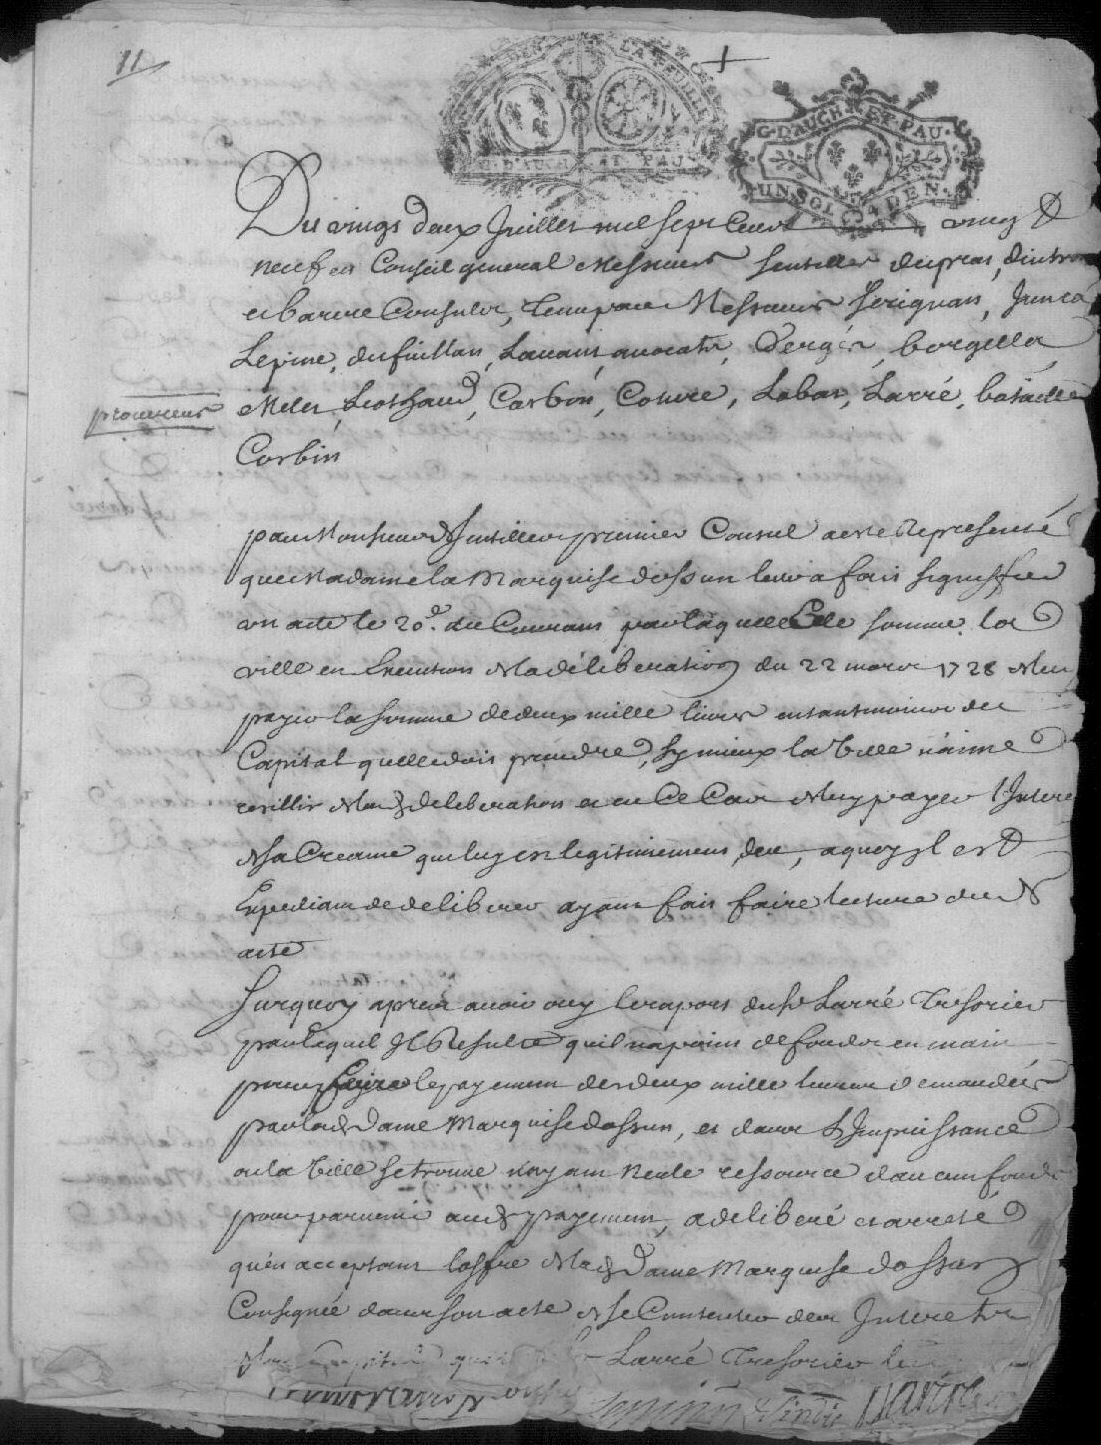 11
LA FEUILLE
G. D'AUCH ET PAU
G. D'AUCH ET PAU.
UN SOL 4 DEN.
Du vingt deux Juillet mil sept Cent vingt &
neuf en Conseil general Messieurs duprat,
et barere Consuls, Messieurs Serignan, Junca
Lepine, Lanant avocats, Verges, borgella
procureur
Meles, Carbon, Couture, Labat, Larré, bataille
Corbin
par Monsieur premier Consul a este Represente
que Madame la Marquise dossun luy a fait signiffier
un acte le 20e. du Courant par laquelle Elle somme la
ville en Execution de la deliberation du 22 mars 1728 de luy
payer la somme de deux mille livres en tant moins du
Capital quelle doit prendre, sy mieux la Ville n'aime
de lad deliberation et en Ce Cas de luy payer l'Interet
de sa Creance qui luy est legitimement deu, a quoy il est
Expediant de deliberer ayant fait faire lecture dud
acte
Surquoy apres avoir ouy le raport du sr Larré Tresorier
par lequel Il Resulte quil na point de fonds en main
pour faire le payement des deux mille livres demandées
par lad Dame Marquise dossun, et dans L'Impuissance
ou la Ville se trouve n'ayant nulle ressource d'aucun fonds
pour parvenir aud payement, a deliberé et arreté
qu'en acceptant l'offre de lad Dame Marquise dossun
Consignée dans son acte de se Contenter des Interets
Larré Tresorier